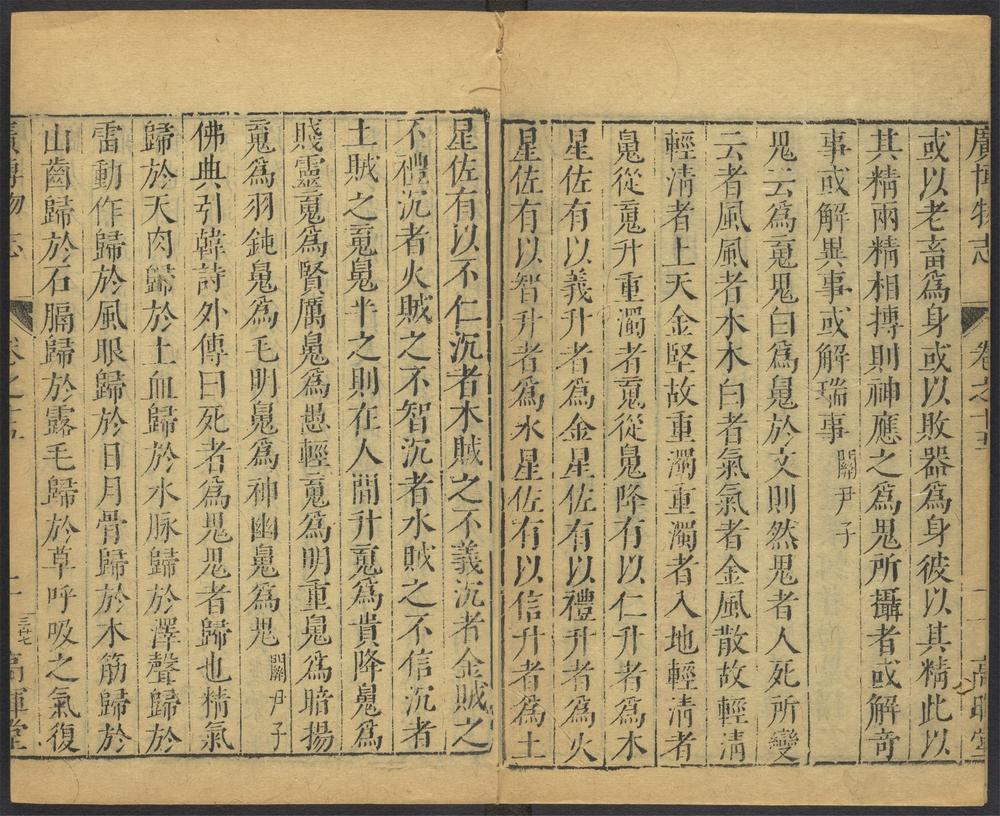 廣博物志 卷之十五 一 高暉堂
或以老畜爲身或以敗器爲身彼以其精此以
其精兩精相摶則神應之爲鬼所攝者或解竒
事或解異事或解瑞事 關尹子
鬼云爲䰟鬼白爲魄於文則然鬼者人死所變
云者風風者木白者氣氣者金風散故輕清
輕清者上天金堅故重濁重濁者入地輕清者
魄從䰟升重濁者䰟從魄降有以仁升者爲木
星佐有以義升者爲金星佐有以禮升者爲火
星佐有以智升者爲水星佐有以信升者爲土
星佐有以不仁沉者木賊之不義沉者金賊之
不禮沉者火賊之不智沉者水賊之不信沉者
土賊之䰟魄半之則在人間升䰟爲貴降魄爲
賤靈䰟爲賢厲魄爲愚輕䰟爲明重魄爲暗揚
䰟爲羽鈍魄爲毛明魄爲神幽魄爲鬼 關尹子
佛典引韓詩外傳曰死者爲鬼鬼者歸也精氣
歸於天肉歸於土血歸於水脉歸於澤聲歸於
雷動作歸於風眼歸於日月骨歸於木筋歸於
山齒歸於石膈歸於露毛歸於草呼吸之氣復
廣博物志 卷之十五 二 高暉堂